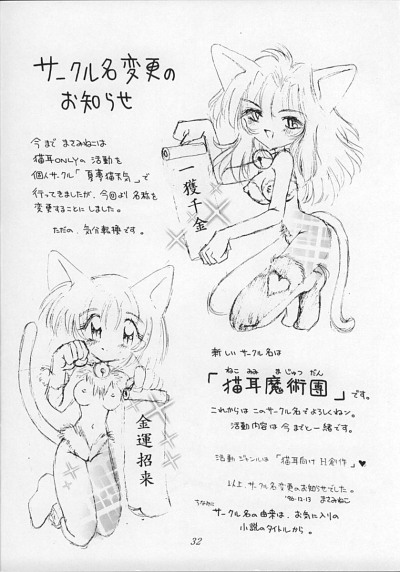 サークル名変更の
お知らせ
今まで まさみねこは
猫耳ONLYの 活動を
個人サークル「夏夢猫不気」で
行ってきましたが、今回より 名称を
変更することにしました。
ただの、気分転換です。
一獲千金
金運招来
新しい サークル名は
ねこ みみ まじゅつ だん
「猫耳魔術團」です。
これからは このサークル名で よろしくねン。
活動内容は 今までと 一緒です。
活動ジャンルは「猫耳向け H創作」♥
以上、サークル名変更の お知らせでした。
まさみねこ
サークル名の 由来は、お気に入りの
小説のタイトルから。
32